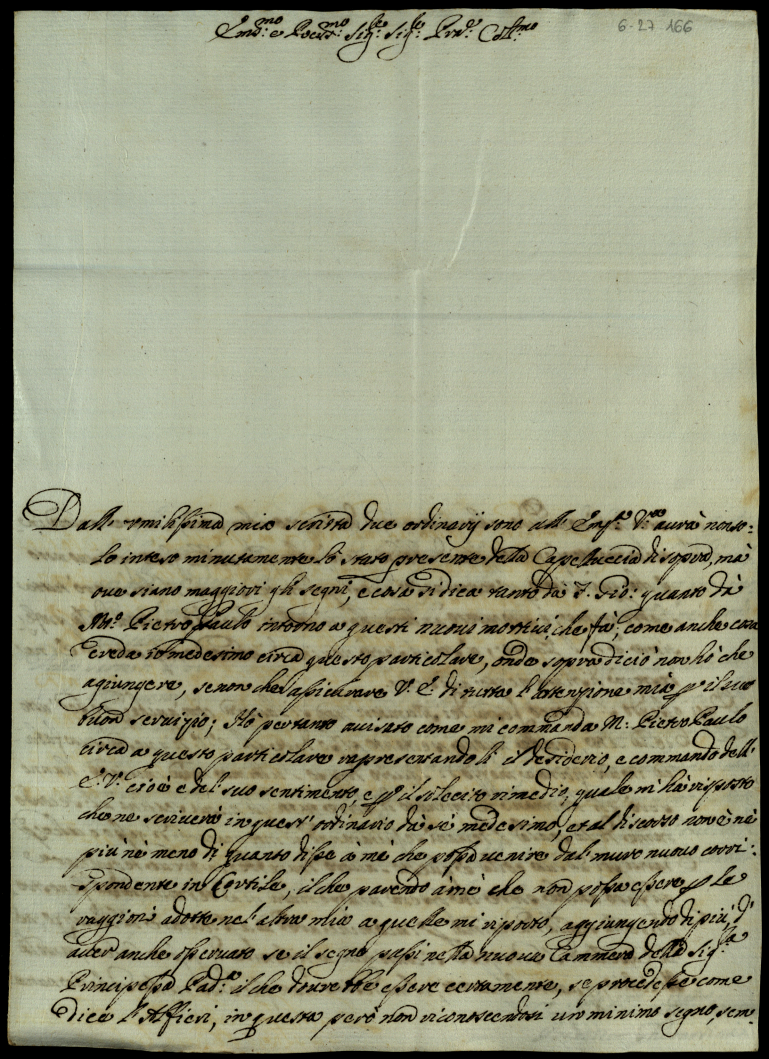 6-27-166
Em.mo e Rever.mo Sig.re Sig.re Pad.e Coll.mo
Dall' umilissima mia scritta due ordinarij sono all' Em.a V.ra aurà non so:
lo inteso minutamente lo stato presente della Capelluccia di sopra, mà
oue siano maggiori gli segni, e cosa si dica tanto dà F. Gio: quanto dà
M.o Pietro Paulo intorno a questi nuoui mottiui, che fà, come anche cosa
creda io medesimo circa questo particolare, onde sopra di ciò non hò che
agiungere, se non che assicurare V. E. di tutta l'attenzione mia p il suo
buon seruizio; Hò per tanto auisato come mi commanda M.o Pietro Paulo
circa a questo particolare rapresentandoli il desiderio, e commando dell'
E. V. cioè e del suo sentimento, e p il solecito rimedio, quale mi hà risposto
che ne scriuerà in quest' ordinario dà sè medesimo, et al discorso non è nè
più nè meno di quanto disse à mè che possa uenire dal muro nuouo corri:
spondente in Cortile, il che parendo à mè che non possa essere p le
raggioni adotte nel' altra mia a quelle mi riporto, aggiungendo di più, d'
auer anche osseruato se il segno passi nella nuoua Cammera della Sig.ra
Principessa Pad.a il che dourebbe essere certamente, se procedesse come
dice l'Alfieri, in questa però non riconoscendosi un minimo segno, sem